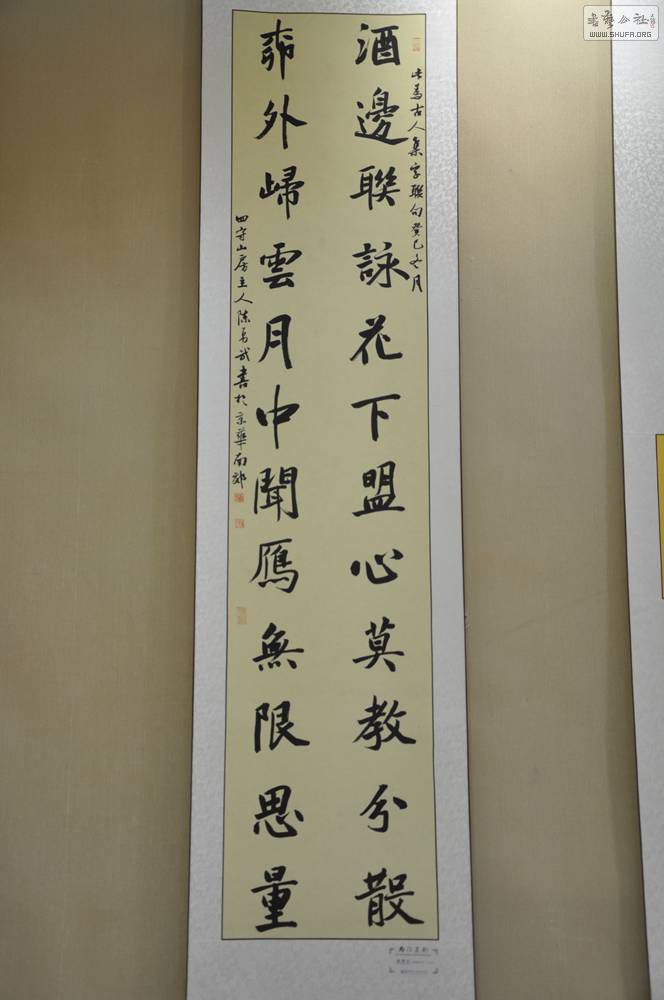 酒邊聯詠花下盟心莫教分散
此為古人集字聯句癸巳冬月
帘外歸雲月中聞鴈無限思量
四守山房主人陈勇武書於京華南郊
書藝公社
WWW.SHUFA.ORG